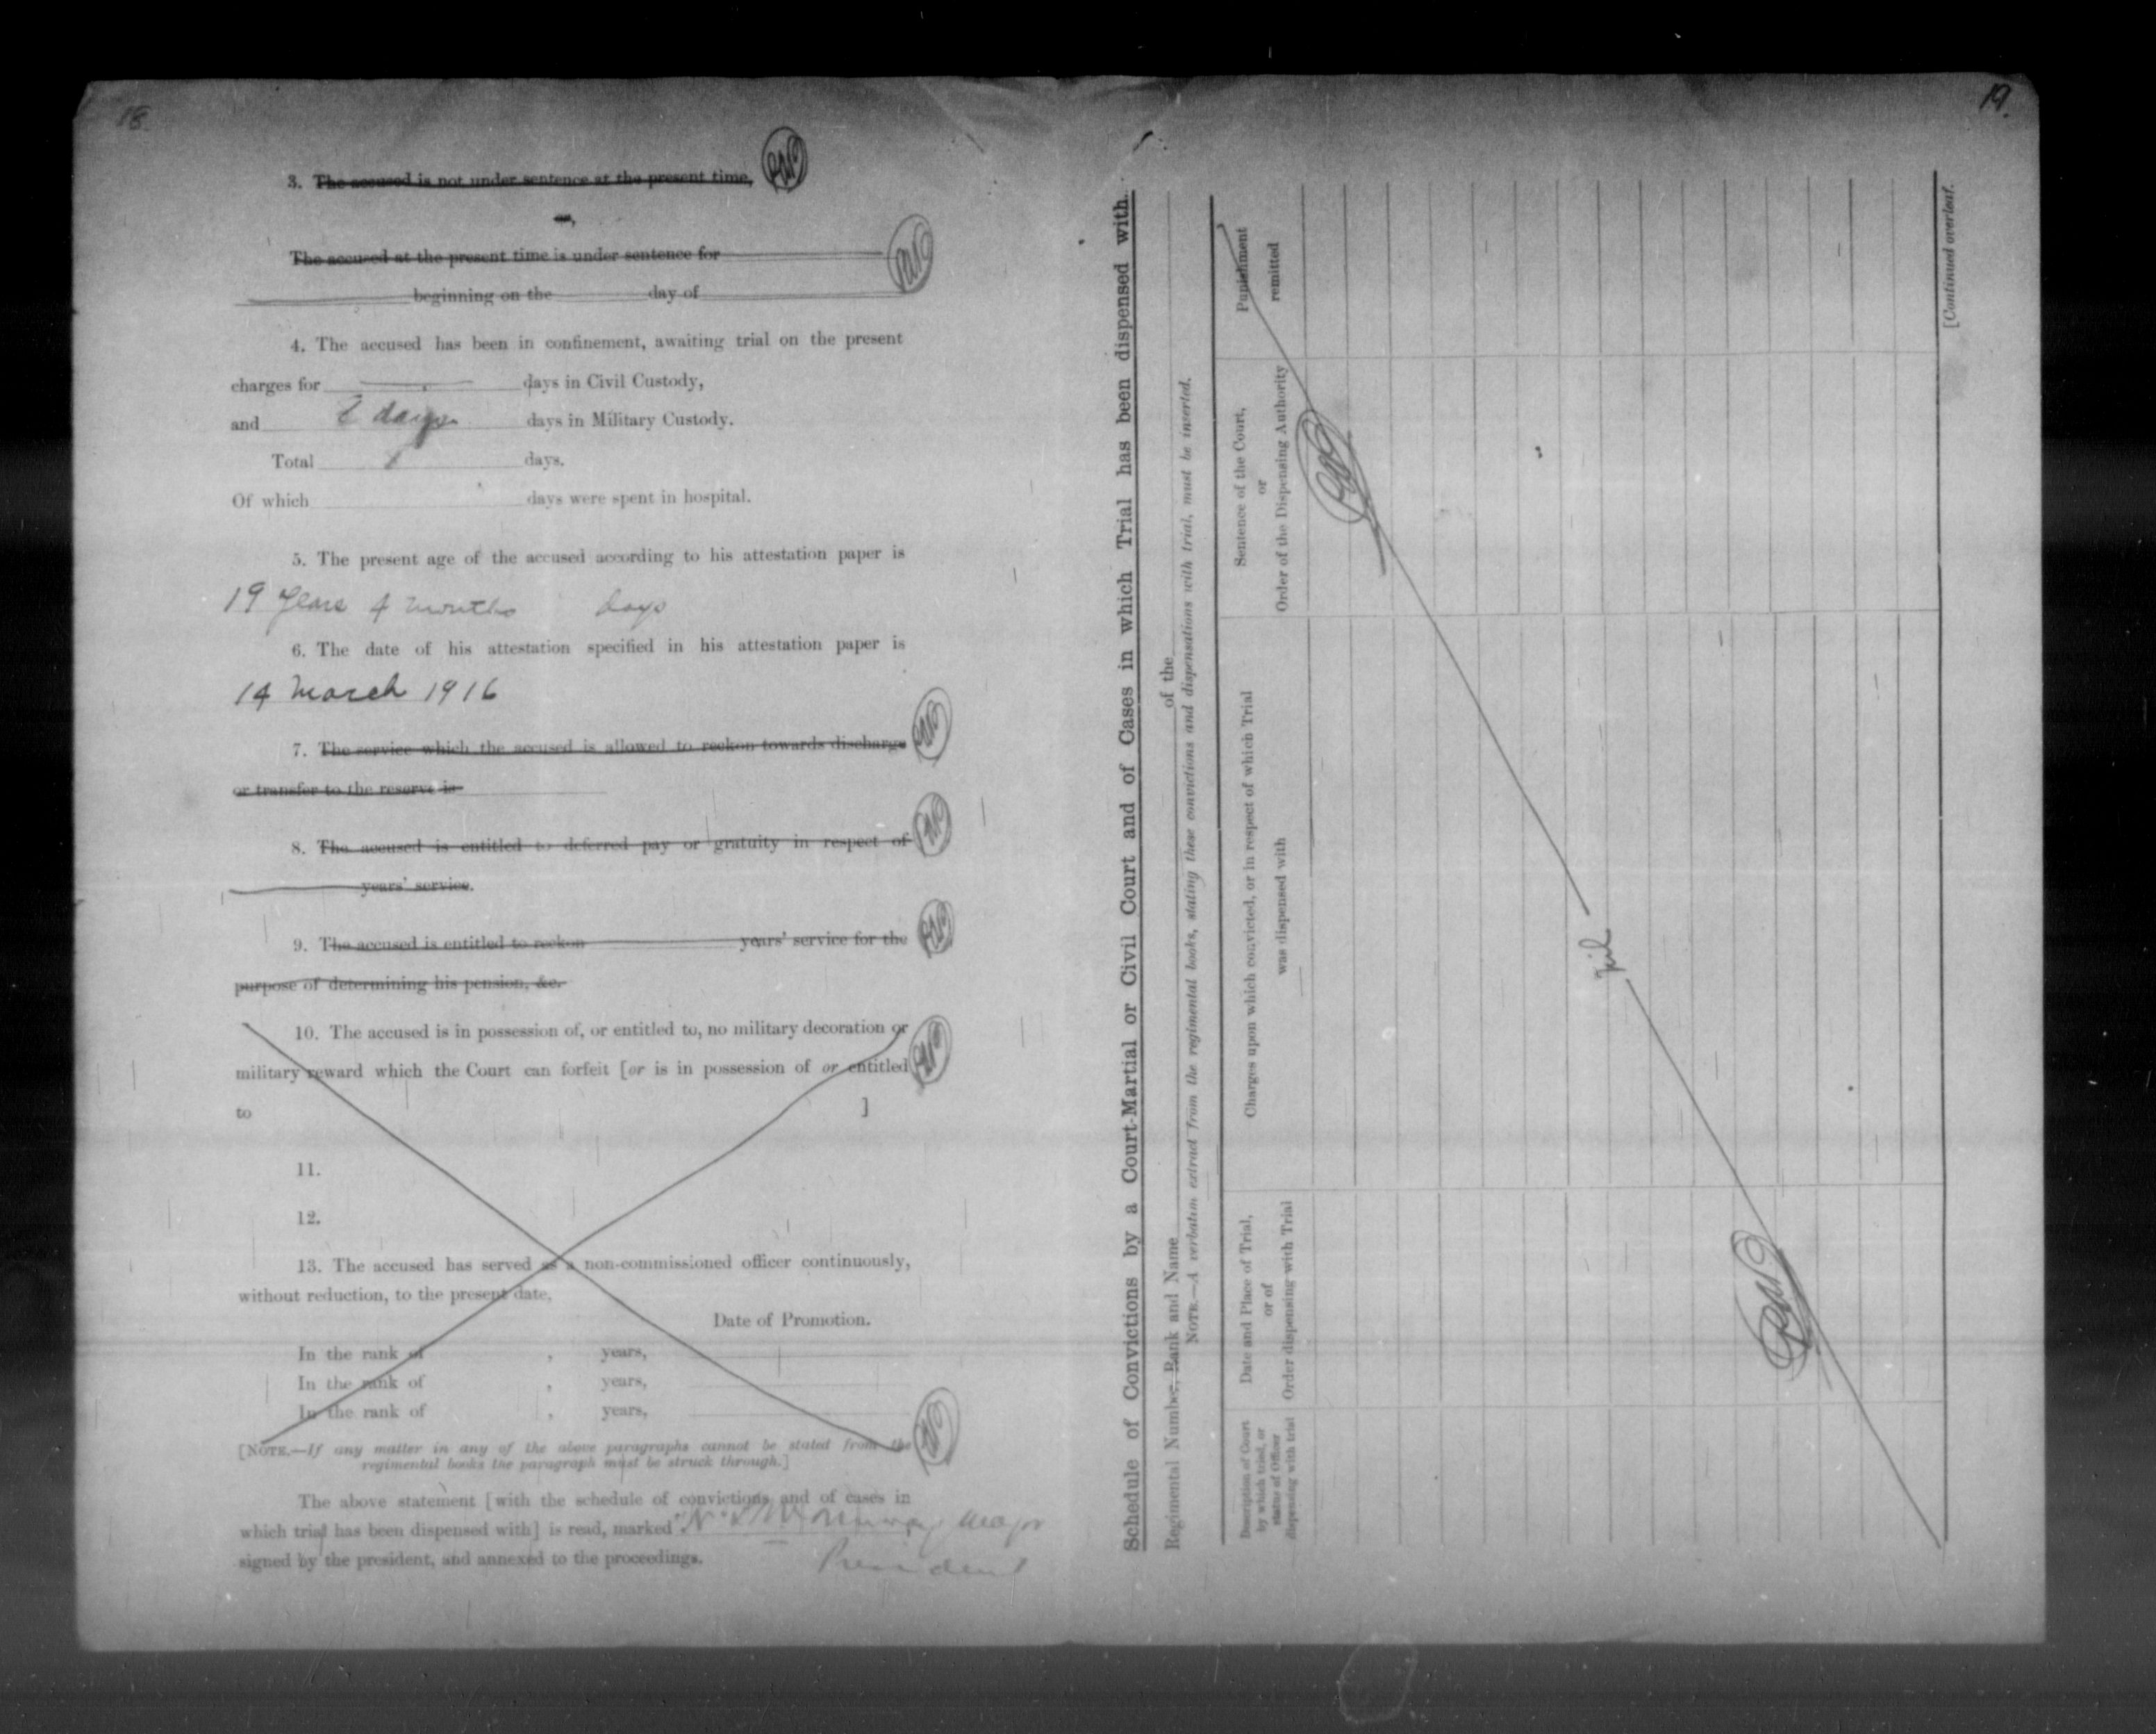 18.
3. The accused is not under sentence at the present time,
or,
The accused at the present time is under sentence for
beginning on the day of
4. The accused has been in confinement, awaiting trial on the present
charges for days in Civil Custody,
and days days in Military Custody.
Total days.
Of which days were spent in hospital.
5. The present age of the accused according to his attestation paper is
19 Years 4 months days
6. The date of his attestation specified in his attestation paper is
14 March 1916
7. The service which the accused is allowed to reckon towards discharge
or transfer to the reserve is
8. The accused is entitled to deferred pay or gratuity in respect of
years' service.
9. The accused is entitled to reckon years' service for the
purpose of determining his pension, &c.
10. The accused is in possession of, or entitled to, no military decoration or
military reward which the Court can forfeit [or is in possession of or entitled
to ]
11.
12.
13. The accused has served as a non-commissioned officer continuously,
without reduction, to the present date.
Date of Promotion.
In the rank of , years,
In the rank of , years,
In the rank of , years,
[NOTE.—If any matter in any of the above paragraphs cannot be stated from the
regimental books the paragraph must be struck through.]
The above statement [with the schedule of convictions and of cases in
which trial has been dispensed with] is read, marked Major
signed by the president, and annexed to the proceedings.
President
19.
Schedule of Convictions by a Court-Martial or Civil Court and of Cases in which Trial has been dispensed with.
Regimental Number, Rank and Name of the
NOTE.—A verbatim extract from the regimental books, stating these convictions and dispensations with trial, must be inserted.
Description of Court
by which tried, or
status of Officer
dispensing with trial
Date and Place of Trial,
or of
Order dispensing with Trial
Charges upon which convicted, or in respect of which Trial
was dispensed with
Sentence of the Court,
or
Order of the Dispensing Authority
Punishment
remitted
nil
[Continued overleaf.